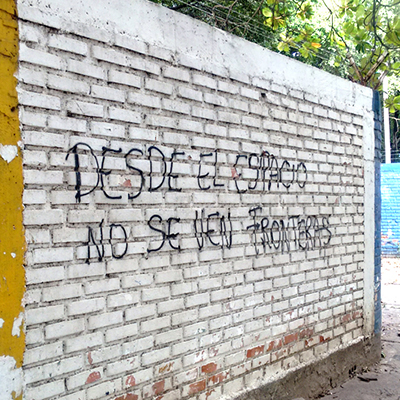 DESDE EL ESPACIO
NO SE VEN FRONTERAS